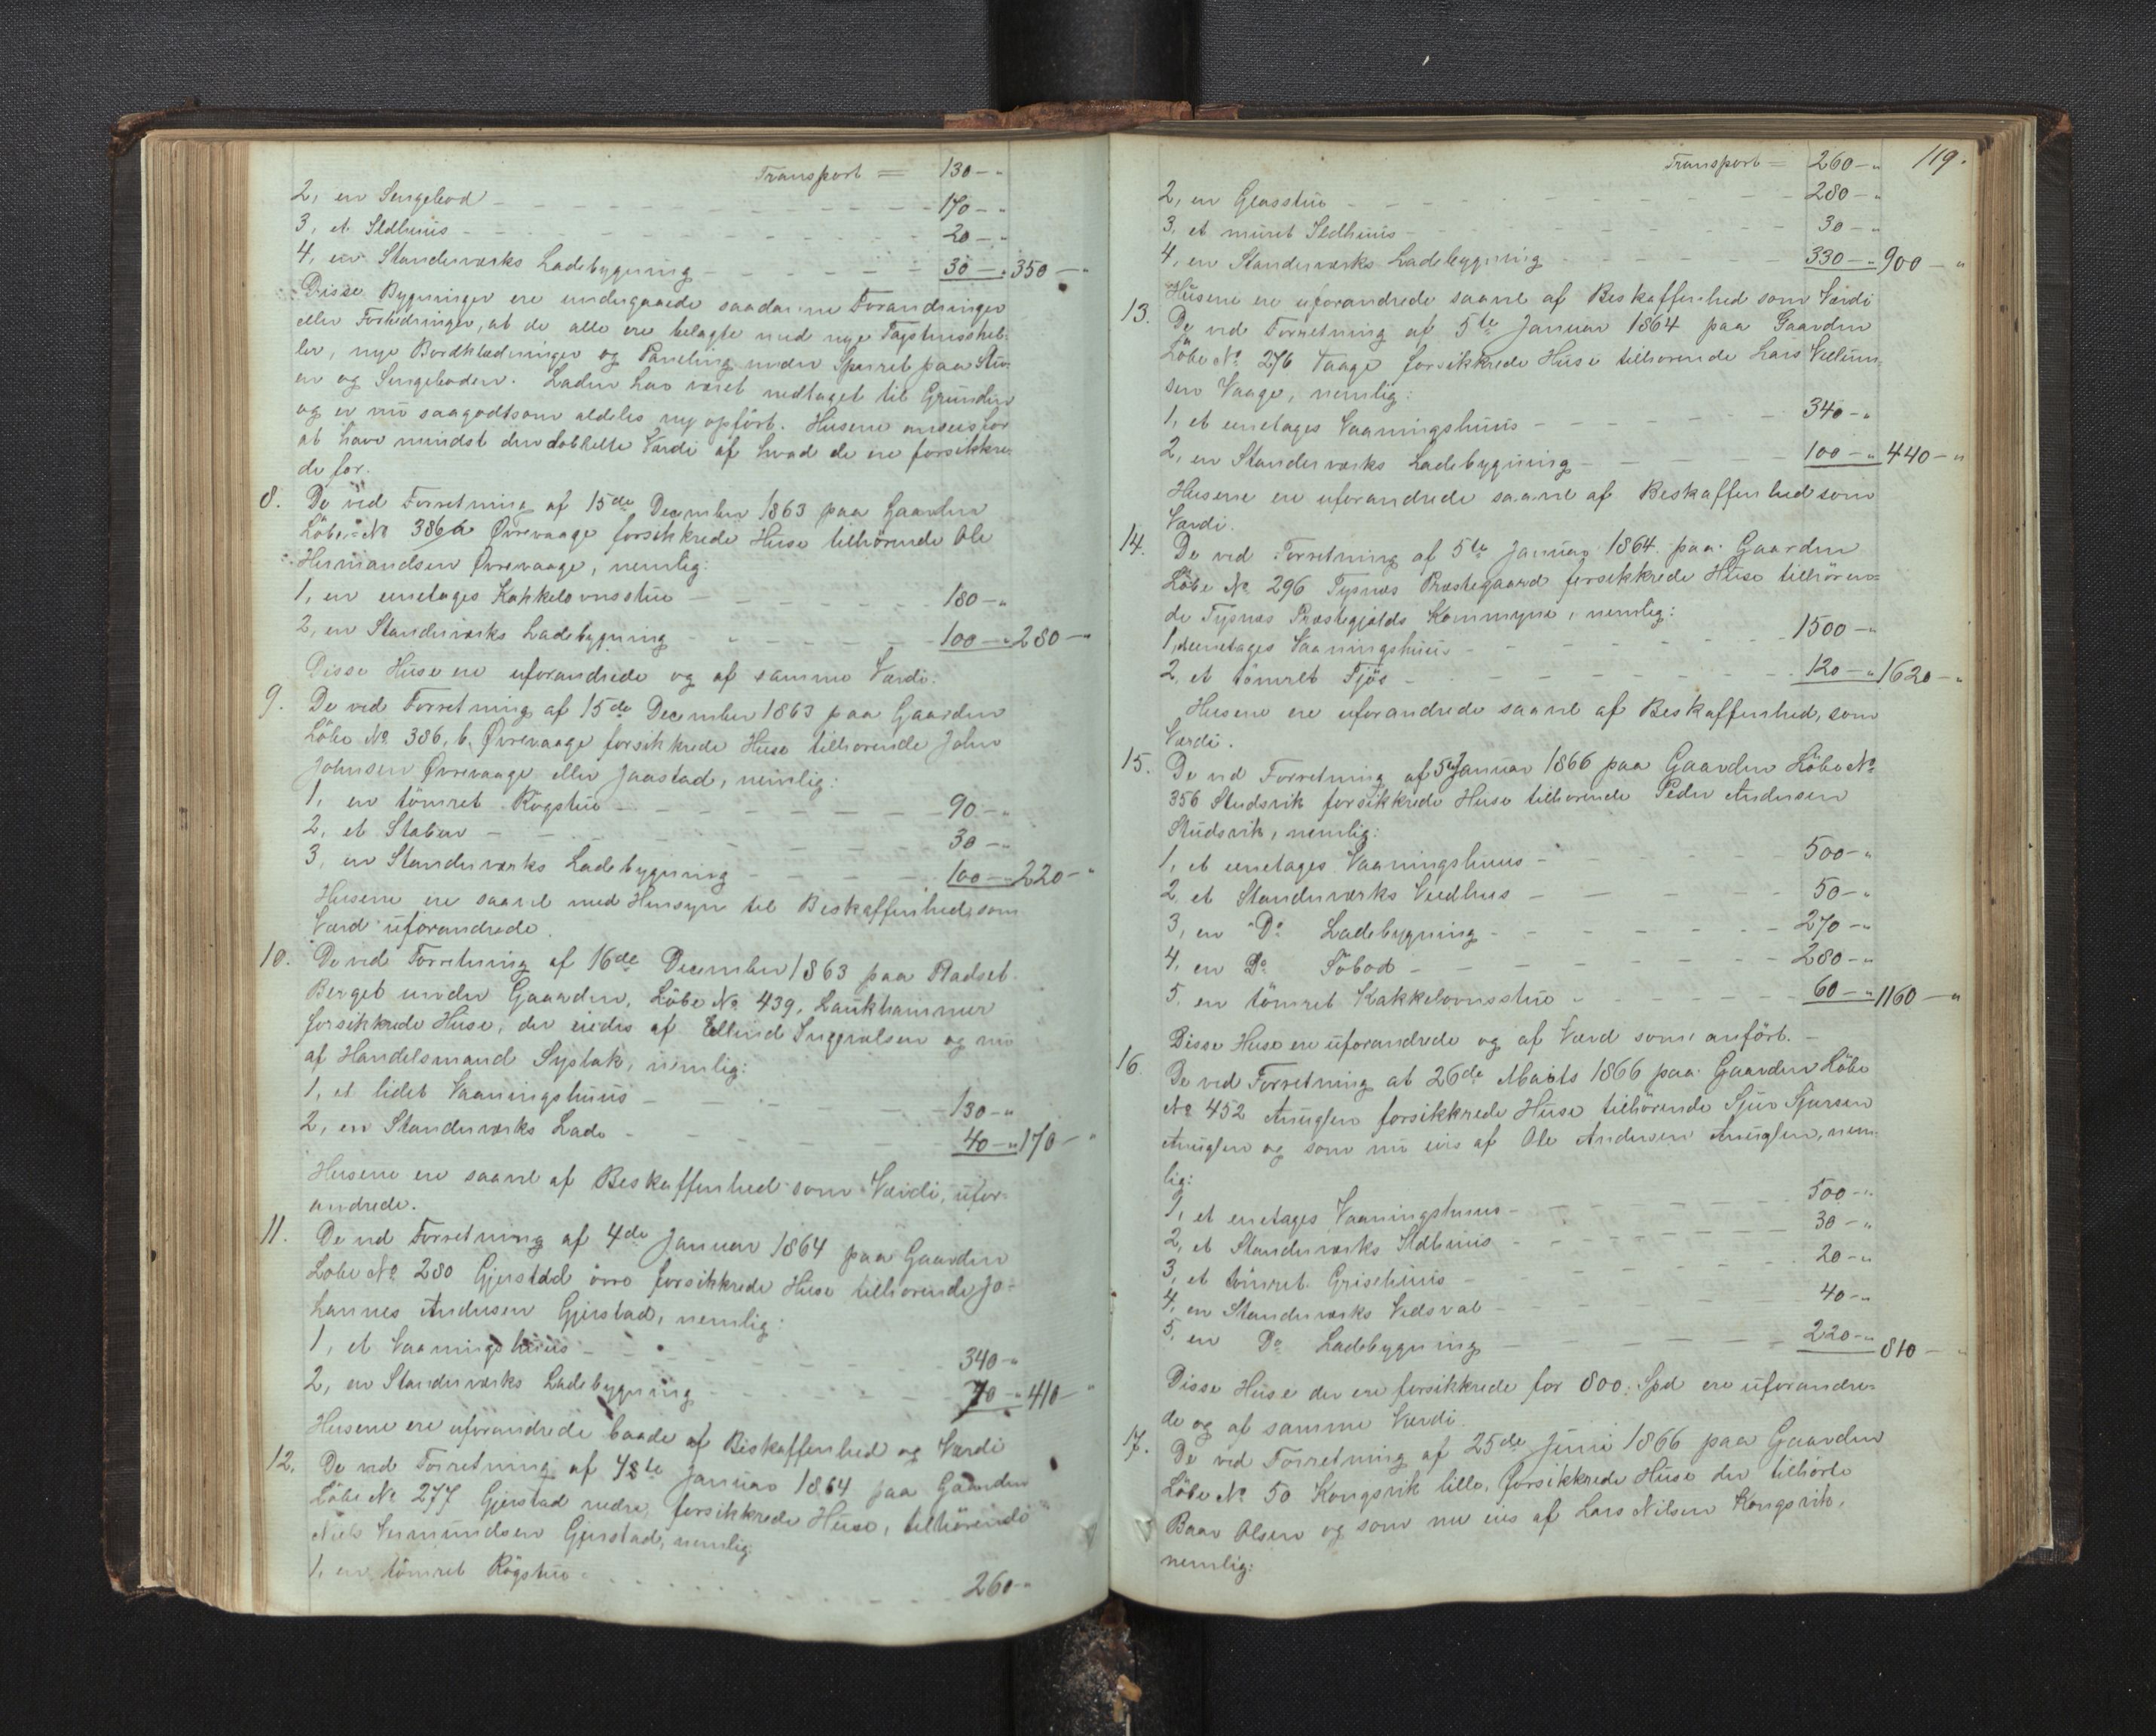 Transport = 130 - "
2, en Sengebod - 170 - "
3, et Ildhuus - 20 - "
4, en Standerværks Ladebygning - 30 - " 350 - "
Disse Bygninger ere undergaaede saadanne Forandringer
eller Forbedringer, at de alle ere belagte med nye Tagstensshel-
ler, nye Bordklædninger og Paneling under Sparret paa Stu-
en og Sengeboden. Laden har været nedtaget til Grunden
og er nu saagodtsom aldeles ny opført. Husene ansees for
at have mindst den dobbelte Værdi af hvad de ere forsikkre-
de for.
8. De ved Forretning af 15de December 1863 paa Gaarden
Löbe-No 386 a Øvrevaage forsikkrede Huse tilhörende Ole
Hermandsen Øvrevaage, nemlig:
1, en eenetages Kakkelovnsstue - 180 - "
2, en Standerværks Ladebygning - 100 - " 280 - "
Disse Huse ere uforandrede og af samme Værdi.
9. De ved Forretning af 15de December 1863 paa Gaarden
Löbe No 386, b. Øvrevaage forsikkrede Huse tilhörende John
Johnsen Øvrevaage eller Jaastad, nemlig:
1, en tömret Rögstue - 90 - "
2, et Stabur - 30 - "
3, en Standerværks Ladebygning - 100 - " 220 - "
Husene ere saavel med Hensyn til Beskaffenhed, som
Værd uforandrede.
10. De ved Forretning af 16de December 1863 paa Pladset
Berget under Gaarden, Löbe No 439, Laukhammer
forsikkrede Huse, der eiedes af Ellend og nu
af Handelsmand Systak, nemlig:
1, et lidet Vaaningshuus - 130 - "
2, en Standerværks Lade - 40 - " 170 - "
Husene ere saavel af Beskaffenhed som Værdi, ufor-
andrede.
11. De ved Forretning af 4de Januar 1864 paa Gaarden
Löbe No 280 Gjerstad övre forsikkrede Huse tilhörende Jo-
hannes Andersen Gjerstad, nemlig:
1, et Vaaningshuus - 340 - "
2, en Standerværks Ladebygning - 70 - " 410 - "
Husene ere uforandrede baade af Beskaffenhed og Værdi
12. De ved Forretning af Januar 1864 paa Gaarden
Löbe No 277 Gjerstad nedre, forsikkrede Huse, tilhörende
Niels Vermundsen Gjerstad, nemlig:
1, en tömret Rögstue - 260 - "
119.
Transport = 260 - "
2, en Glasstue - 280 - "
3, et muret Ildhuus - 30 - "
4, en Standerværks Ladebygning - 330 - " 900 - "
Husene ere uforandrede saavel af Beskaffenhed som Værdi
13. De ved Forretning af 5te Januar 1864 paa Gaarden
Löbe No 276 Vaage forsikkrede Huse tilhorende Lars Vellum-
sen Vaage, nemlig:
1, et eenetages Vaaningshuus - 340 - "
2, en Standerværks Ladebygning - 100 - " 440 - "
Husene ere uforandrede saavel af Beskaffenhed som
Værdi.
14. De ved Forretning af 5te Januar 1864 paa Gaarden
Löbe No 296 Tysnæs Præstegaard forsikkrede Huse tilhören-
de Tysnæs Præstegjælds Kommune, nemlig:
1, eenetages Vaaningshuus - 1500 - "
2, et tömret Fjös - 120 - " 1620 - "
Husene ere uforandrede saavel af Beskaffenhed, som
Værdi.
15. De ved Forretning af 5te Januar 1866 paa Gaarden Löbe No
356 Studsvik forsikkrede Huse tilhorende Peder Andersen
Studsvik, nemlig:
1, et eenetages Vaaningshuus - 500 - "
2, et Standerværks Vedhus - 50 - "
3, en Do Ladebygning - 270 - "
4, en Do Söbod - 280 - "
5. en tömret Kakkelovnsstue - 60 - " 1160 - "
Disse Huse ere uforandrede og af Værd som anfört. -
16. De ved Forretning at 26de Marts 1866 paa Gaarden Löbe
No 452 Anuglen forsikkrede Huse tilhörende Sjur Sjursen
Anuglen og som nu eies af Ole Andersen Anuglen, nem-
lig:
1, et enetages Vaaningshuus - 500 - "
2, et Standerværks Ildhuus - 30 - "
3, et tömret Grisehuus - 20 - "
4, en Standerværks Vedsval - 40 - "
5, en Do Ladebygning - 220 - " 810 - "
Disse Huse der ere forsikkrede for 800 Spd ere uforandre-
de og af samme Værdi.
17. De ved Forretning af 25de Juni 1866 paa Gaarden
Löbe No 50 Kongsvik lille, forsikkrede Huse der tilhörte
Baar Olsen og som nu eies af Lars Nilsen Kongsvik,
nemlig: